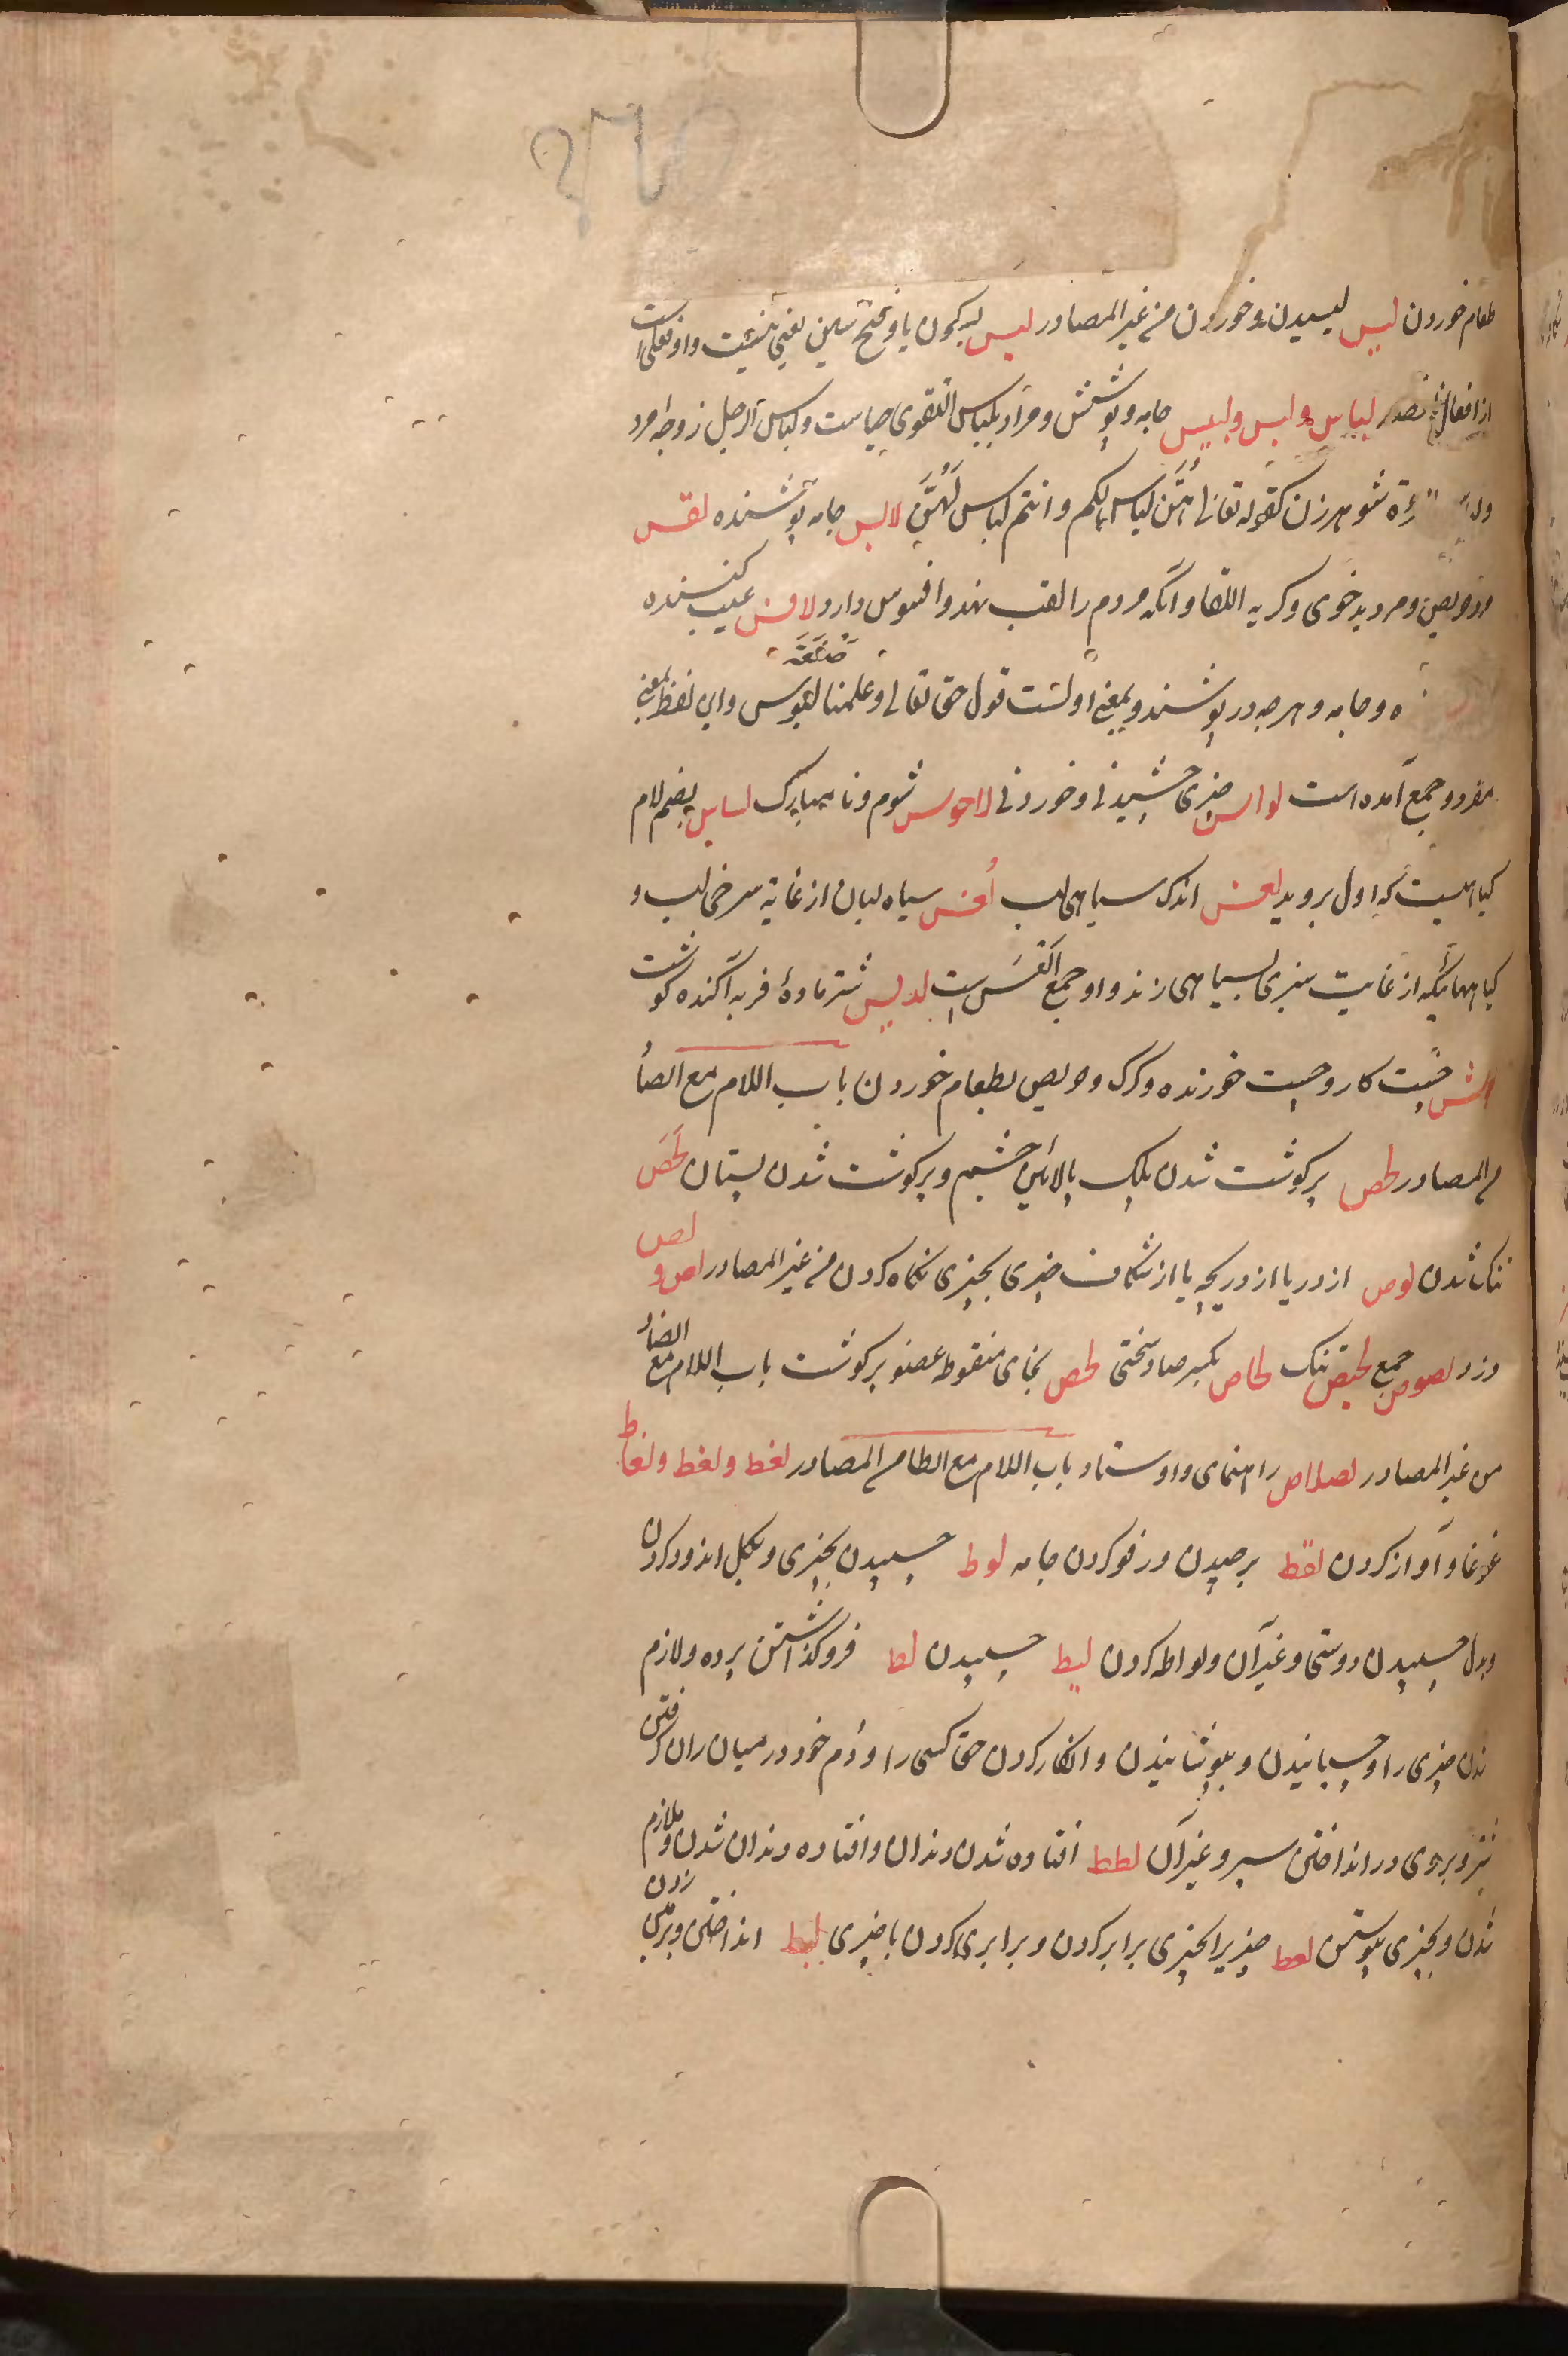 طعام خوردن لیس لیسیدن و خوردن من غیر المصادر لیس بسکون یا و فتح سین یعنی نیست و او فعلی است
از افعال لباس و لبس و لبیس جامه و پوشش و مراد بلباس التقوی حیاست و لباس الرجل زوجه مرد
شوهر زن کقوله تعالی هن لباس لکم و انتم لباس لهن لابس جامه پوشنده لقس
و مرد بدخوی و کریه اللقا و آنکه مردم را لقب نهد و افسوس دارد لاقس عیب کننده
و جامه و هرچه درپوشند و بمعنی اولست قول حق تعالی و علمناه صنعة لبوس و این لفظ بمعنی
مفرد و جمع آمده است لواس چیزی چشیدنی و خوردنی لاحوس شوم و نامبارک لساس بضم لام
کیاهیست که اول بروید لعس اندک سیاهی لب لعس سیاه لبان از غایة سرخی لب و
کیاههائیکه از غایت سبزی بسیاهی زند و او جمع العس است لدیس شتر مادهٔ فربه آکنده کوشت
چست کار و چست خورنده و کرک و حریص بطعام خوردن باب اللام مع الصاد
من المصادر لحص پرکوشت شدن پلک بالائین چشم و پرکوشت شدن پستان لحص
تنک شدن لوص از در یا از دریچه یا از شکاف چیزی بچیزی نکاه کردن من غیر المصادر لص و لص
دزد لصوص جمع لحیص تنک لحاص بکسر صاد سختی لخص بخای منقوطه عضو پرکوشت باب اللام مع الضاد
من غیر المصادر لضلاض راهنمای و اوستاد باب اللام مع الطا من المصادر لغط و لغط و لغاط
غوغا و آواز کردن لقط برچیدن و رفو کردن جامه لوط چسپیدن بچیزی و بکل اندود کردن
و بدل چسپیدن دوستی و غیر آن و لواطه کردن لیط چسپیدن لط فروکذاشتن پرده و لازم
شدن چیزی را و چسبانیدن و بپوشانیدن و انکار کردن حق کسی را و دم خود در میان ران کرفتن
و بروی در انداختن سپر و غیر آن لطط افتاده شدن دندان و افتاده دندان شدن و ملازم
شدن و بچیزی پیوستن لعط چیزیرا بچیزی برابر کردن و برابری کردن با چیزی لبط انداختن و بر زمین زدن